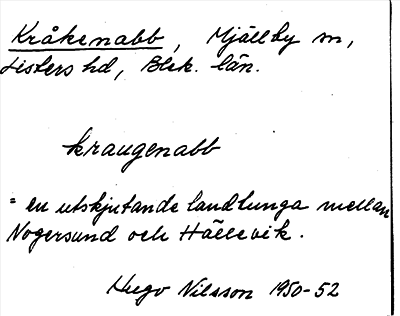 Kråkenabb, Mjällby sn,
Listers hd, Blek. län.
kraugenabb
= en utskjutande landtunga mellan
Nogersund och Hällevik.
Hugo Nilsson 1950-52